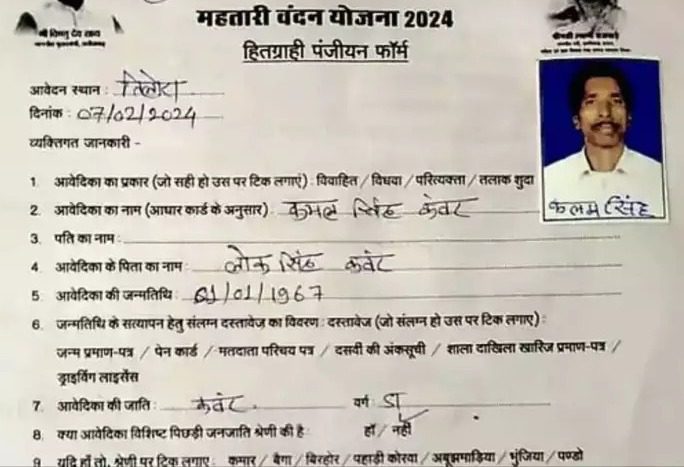 महतारी वंदन योजना 2024
हितग्राही पंजीयन फॉर्म
श्री विष्णु देव साय
आवेदन स्थान : तिलोरा
दिनांक : 07/02/2024
व्यक्तिगत जानकारी -
1. आवेदिका का प्रकार (जो सही हो उस पर टिक लगाएं) : विवाहित / विधवा / परित्यक्ता / तलाक शुदा
2. आवेदिका का नाम (आधार कार्ड के अनुसार) : कमल सिंह कंवर
कलम सिंह
3. पति का नाम :
4. आवेदिका के पिता का नाम : लोक सिंह कवंर
5. आवेदिका की जन्मतिथि : 01/01/1967
6. जन्मतिथि के सत्यापन हेतु संलग्न दस्तावेज का विवरण : दस्तावेज (जो संलग्न हो उस पर टिक लगाए) :
जन्म प्रमाण-पत्र / पेन कार्ड / मतदाता परिचय पत्र / दसवी की अंकसूची / शाला दाखिला खारिज प्रमाण-पत्र /
ड्राइविंग लाइसेंस
7. आवेदिका की जाति : कवंर वर्ग
8. क्या आवेदिका विशिष्ट पिछड़ी जनजाति श्रेणी की है : हॉ / नहीं
9. यदि हॉ तो, श्रेणी पर टिक लगाए : कमार / बैगा / बिरहोर / पहाड़ी कोरवा / अबूझमाड़िया / भुंजिया / पण्डो